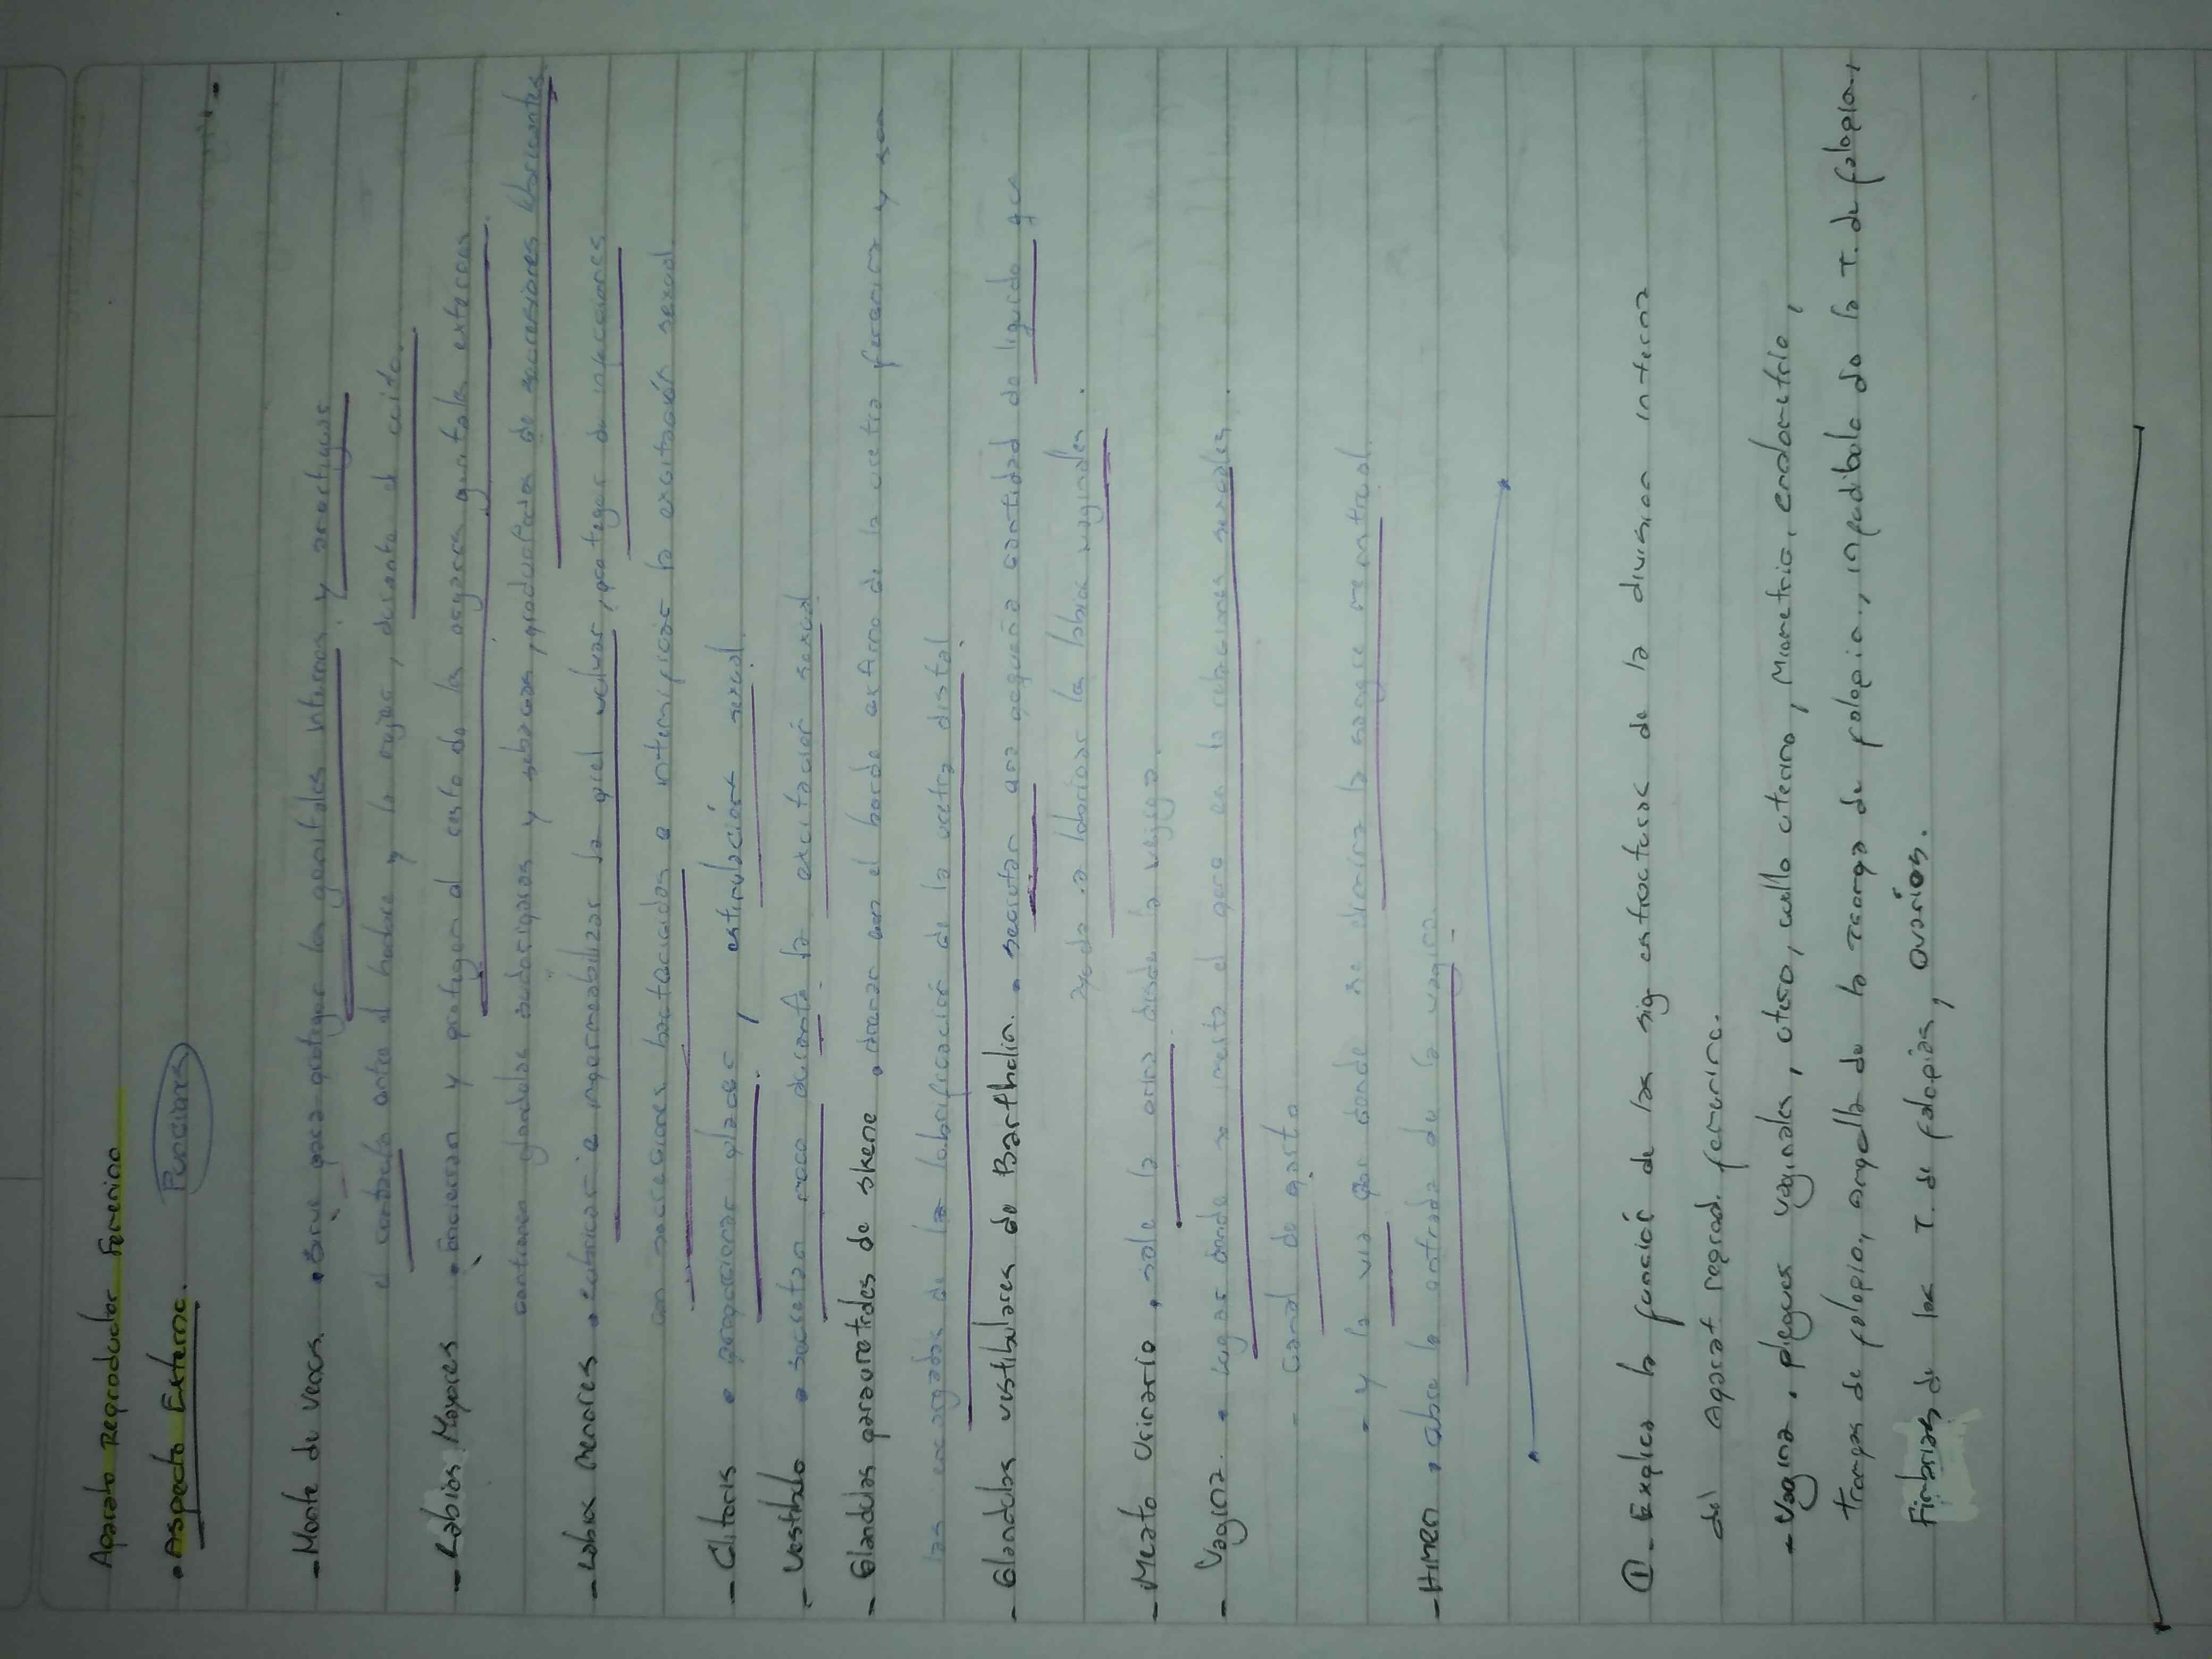 Aparato Reproductor Femenino
• Aspecto Externo. Funciones
- Monte de venus. • Sirve para proteger los genitales internos y amortiguar
el contacto entre el hombre y la mujer, durante el coito.
- Labios Mayores • Encierran y protegen al resto de los organos genitales externos
contienen glandulas sudoriparas y sebaceas, productoras de secresiones lubricantes
- Labios menores. • Lubricar e impermeabilizar la piel vulvar, proteger de infecciones
con secreciones bactericidas e intensificar la excitación sexual
- Clitoris • proporcionar placer, estimulación sexual
- Vestibulo • secretan moco durante la excitación sexual
- Glandulas parauretrales de skene • drenan en el borde externo de la uretra femenina y son
las encargadas de la lubrificación de la uretra distal.
- Glandulas vestibulares de Barthholin. • secretan una pequeña cantidad de liquido que
ayuda a lubricar los labios vaginales.
- Meato Urinario • sale la orina desde la vejiga.
- Vagina. • Lugar donde se inserta el pene en la relaciones sexuales.
- Canal de parto
- y la via por donde se elimina la sangre menstrual.
- HIMEN • cubre la entrada de la vagina.
① - Explica la función de las sig estructuras de la division interna
del Aparat reprod. femenino.
- Vagina, pliegues vaginales, utero, cuello uterino, Miometrio, endometrio,
trompas de falopio, ampolla de la trompa de falopio, infudibulo de la T. de falopion,
Fimbrias de las T. de falopias, ovarios.